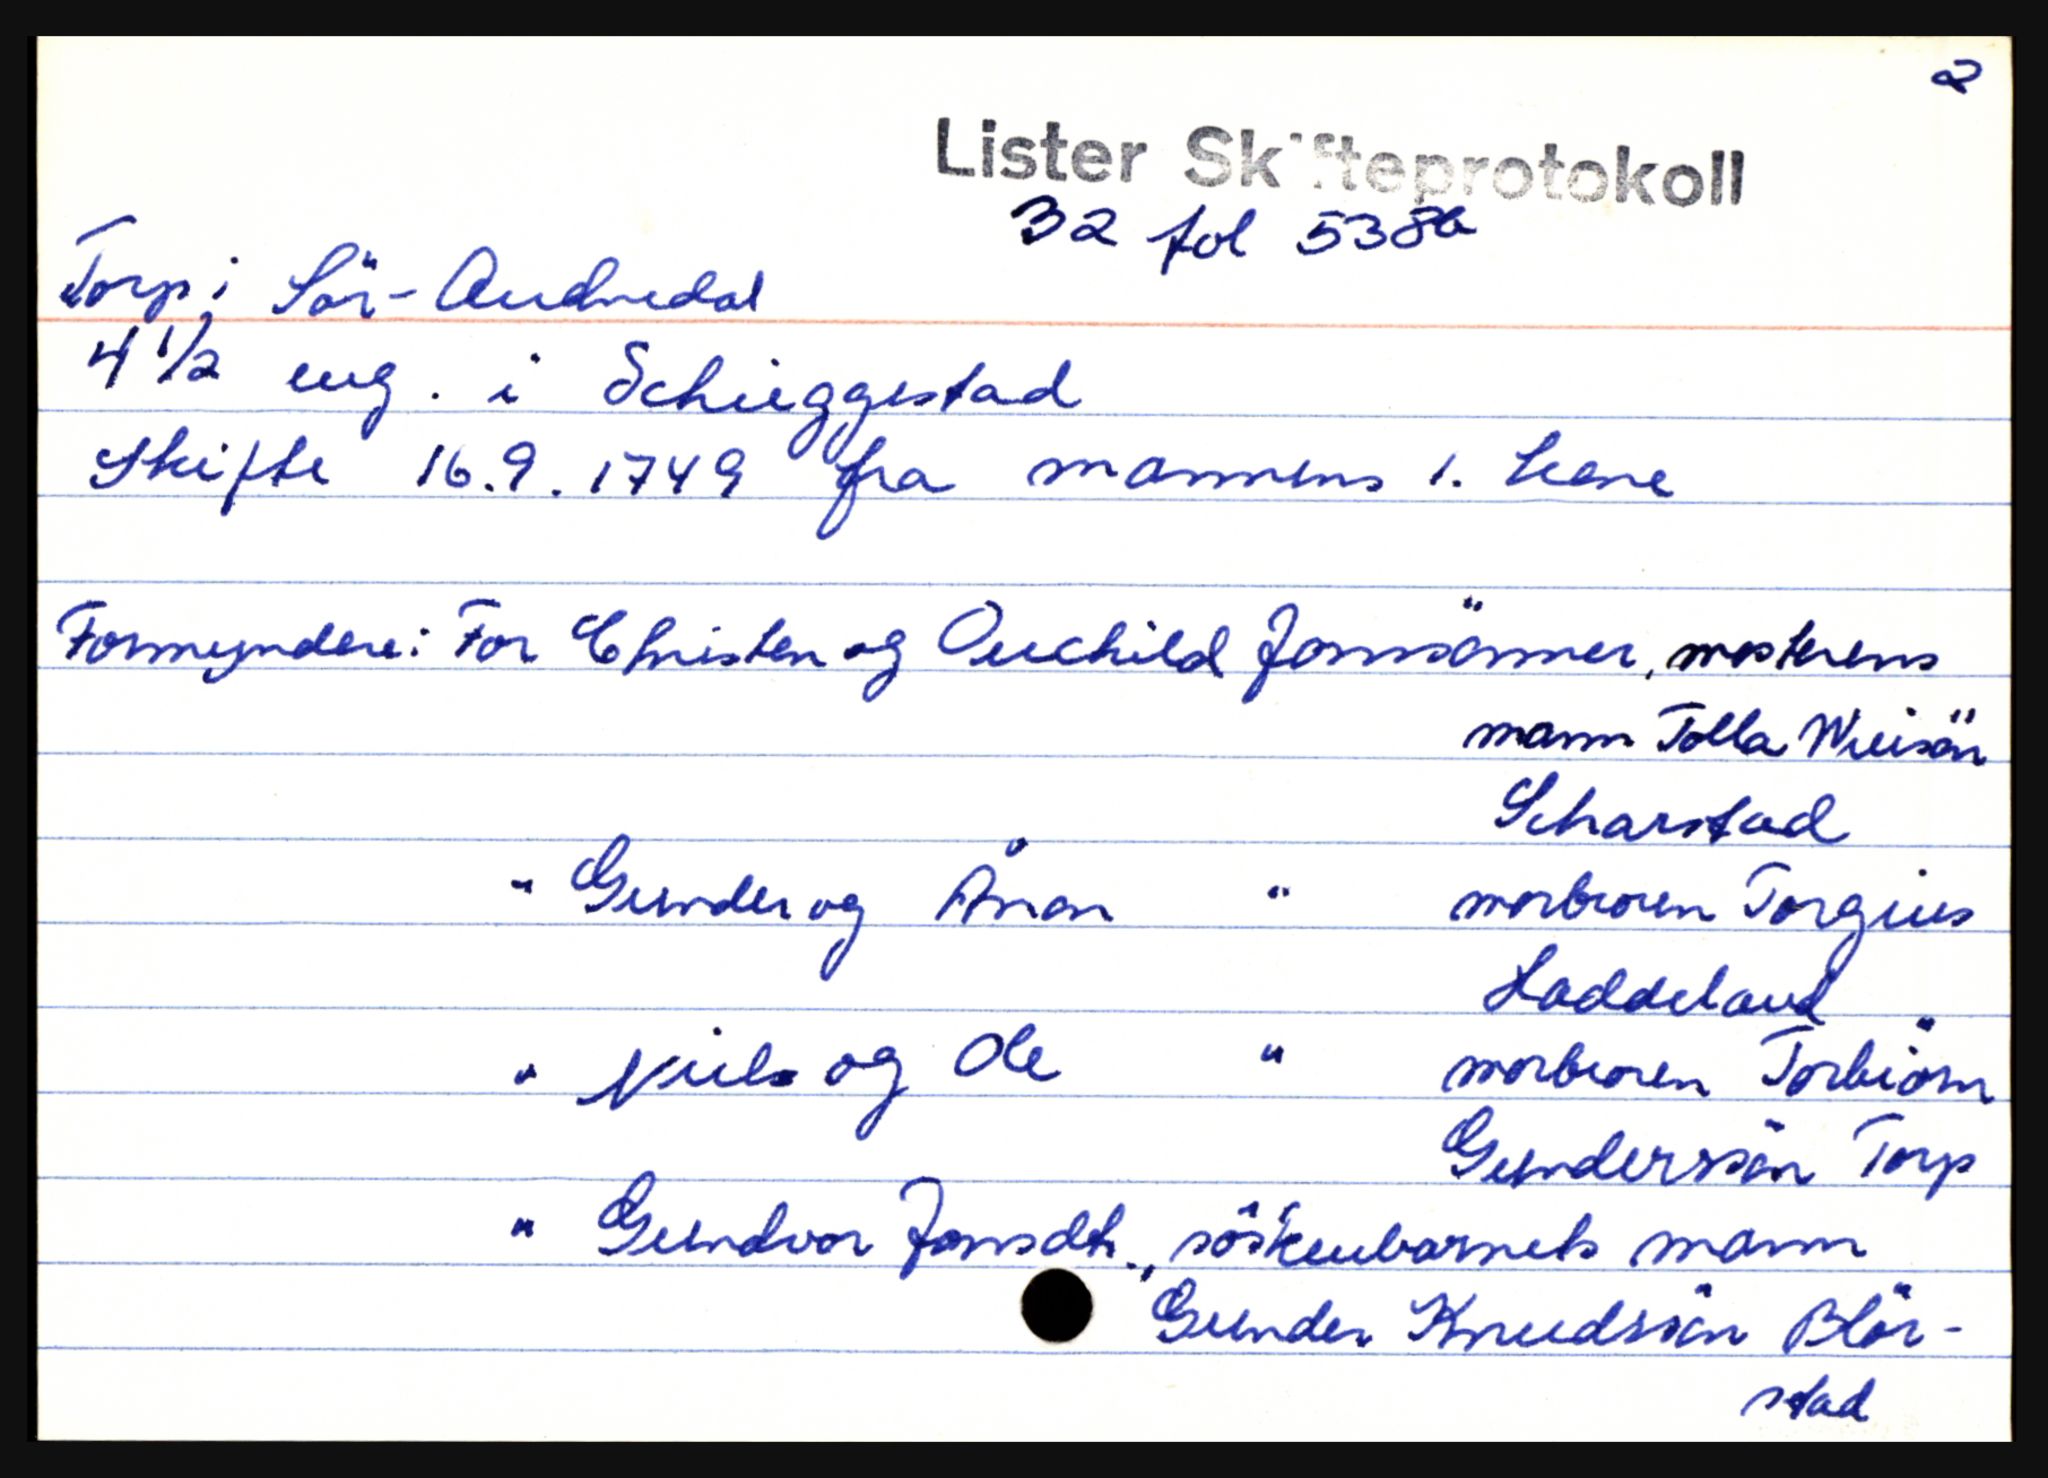 2
Lister Skifteprotokoll
32 fol 538b
Torp i Sör-Audnedal
4 1/2 eng. i Schieggestad
Skifte 16.9.1749 fra mannens 1. kone
Formyndere: For Christen og Ouchild Jonssönner, mosterens
mann Tolla Willsön
Scharstad
" Gunder og Ånon " morbroren Torgius
Haddeland
" Niels og Ole " morbroren Torbiörn
Gundersön Torp
" Gundvor Jonsdtr., söskenbarnets mann
Gunder Knudssön Blör-
stad